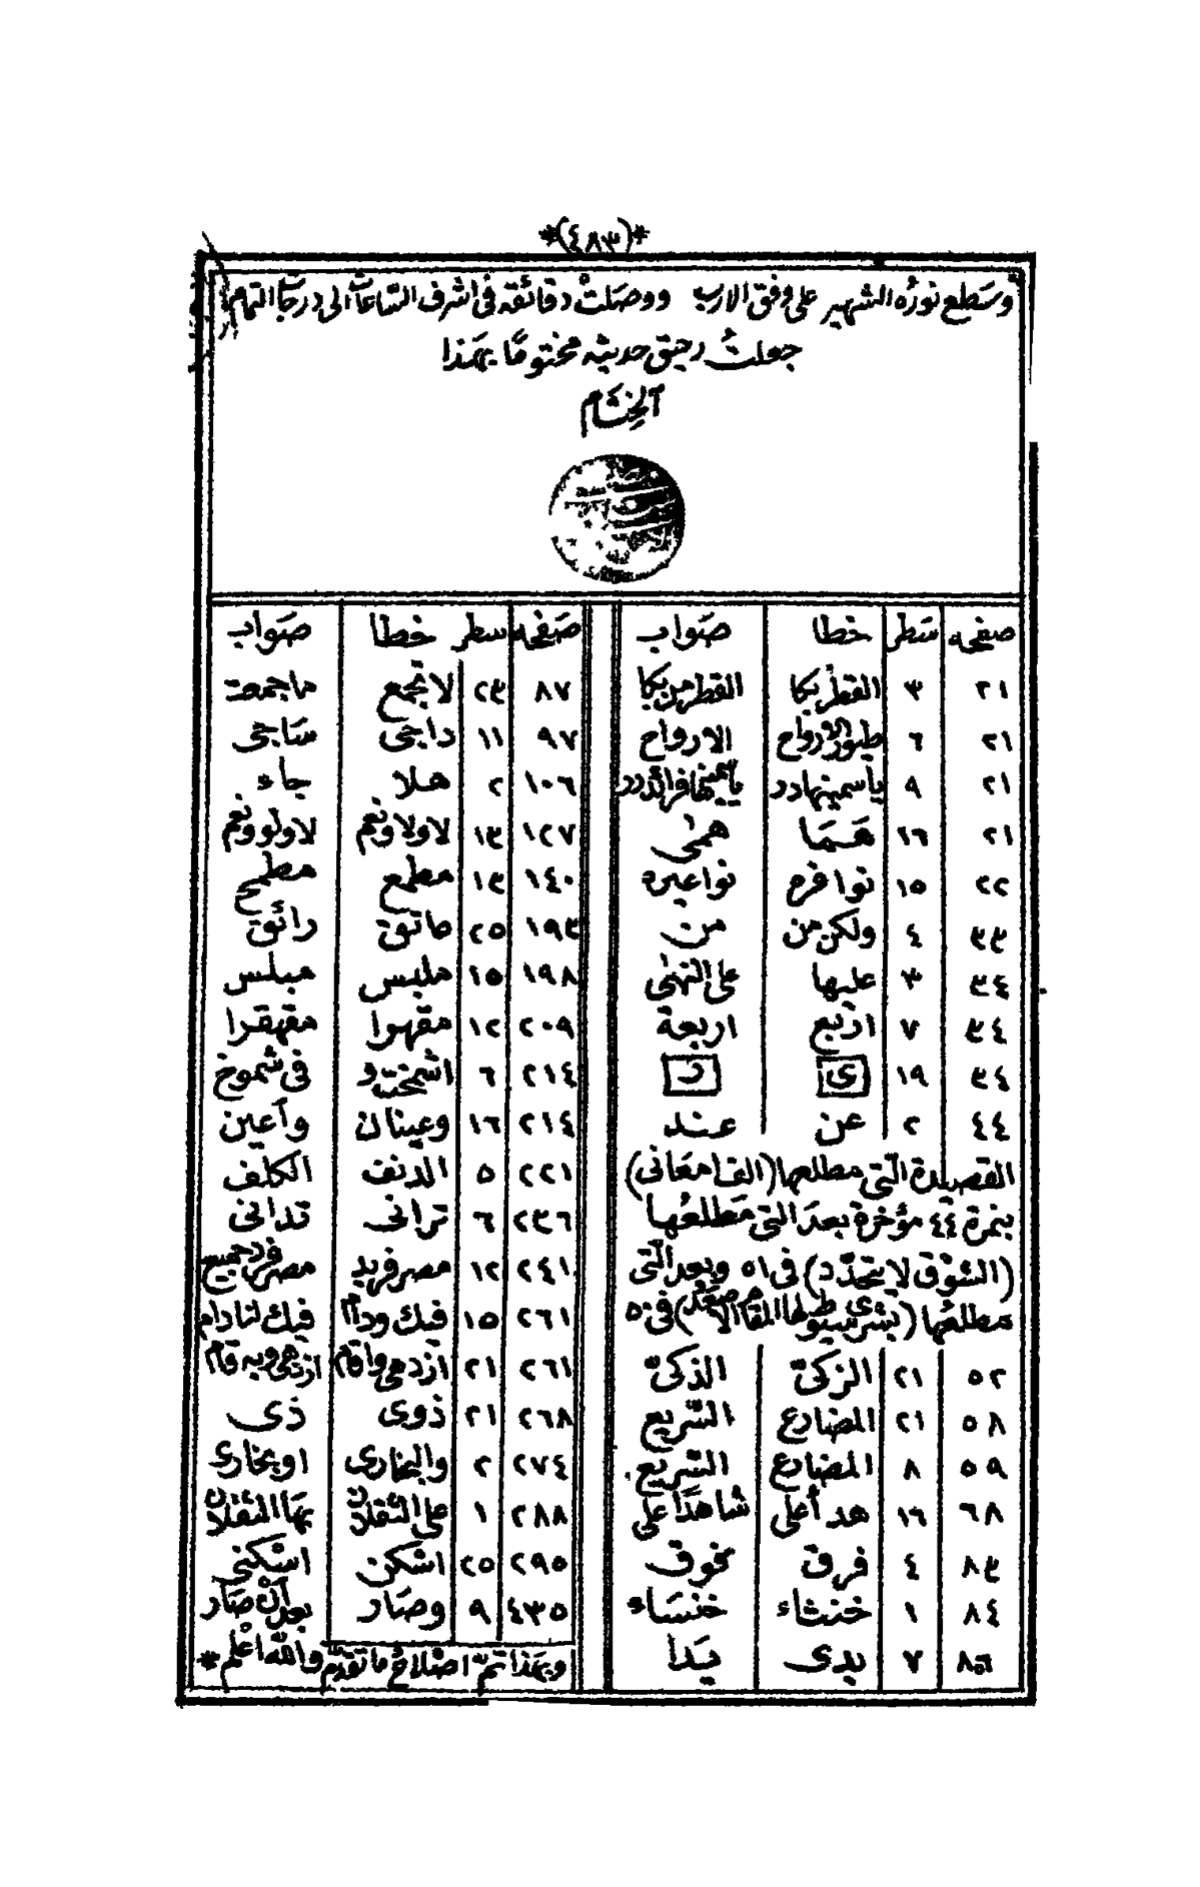 *(٤٨٣)*
وسَطع نورُه الشهير على وفق الارب ووصَلتْ دقائقه فى اشرف السَّاعات الى درجات التمام
جعلتُ رحيق حديثه مختومًا بهَذا
الخِتَام
صَفحه سَطر خطا صَواب
٢١ ٣ القطربكا القطرمزبكا
٢١ ٦ طيورالارواح الارواح
٢١ ٩ ياسمينهادرد
٢١ ١٦ هَمَمَا همٰى
٢٢ ١٥ نوافره نواعيره
٣٣ ٤ ولكن من من
٣٤ ٣ عليها على النهٰى
٣٤ ٧ اربع اربعة
٣٤ ١٩ ى ر
٤٤ ٢ عن عند
القصيدة الّتى مطلعها (القامعَانى)
بنمرة ٤٤ مؤخرة بعدَ التى مَطلعُها
(الشوْق لا يتجدّد) فى ٥١ وبعد الّتى
مَطلعُها (بشرى سيوطلها المقام الاصعَد) فى ٥٠
٥٢ ٢١ الزكىّ الذكىّ
٥٨ ٢١ المضارع السَّريع
٥٩ ٨ المضارع السَّريع
٦٨ ١٦ هد أعلى شاهدًا على
٨٣ ٤ فرق نخوق
٨٤ ١ خنثاء خنسَاء
٨٥ ٧ يدى يَدا
صَفحه سطر خطا صَواب
٨٧ ٢٣ لا تجمع ما جمعت
٩٧ ١١ داجى سَاجى
١٠٦ ٢ هلا جاء
١٢٧ ١٣ لاولا ونعم لا ولو ونعم
١٤٠ ١٣ مطمع مطمح
١٩٣ ٢٥ مائق رائق
١٩٨ ١٥ ملبس مبلس
٢٠٩ ١٢ مقهرا مقهقرا
٢١٤ ٦ اشمخت و فى شموخ
٢١٤ ١٦ وعينان وأعين
٢٢١ ٥ الدنف الكلف
٢٣٦ ٦ ترانى تدانى
٢٤١ ١٢ مصر فريد مصر فرد جميع
٢٦١ ١٥ فيك ودام فيك لنا دام
٢٦١ ٢١ ازدهى واقام ازدهى وبه قام
٢٦٨ ٢١ ذوى ذى
٢٧٤ ٢ والبخارى اوبخارى
٢٨٨ ١ على الثقلان بها الثقلان
٢٩٥ ٢٥ اشكن اسْكنى
٤٣٥ ٩ وصَار بعد أنْ صَار
وبهَذا تمّ اصْلاحُ ما تقدّم والله اعْلم *